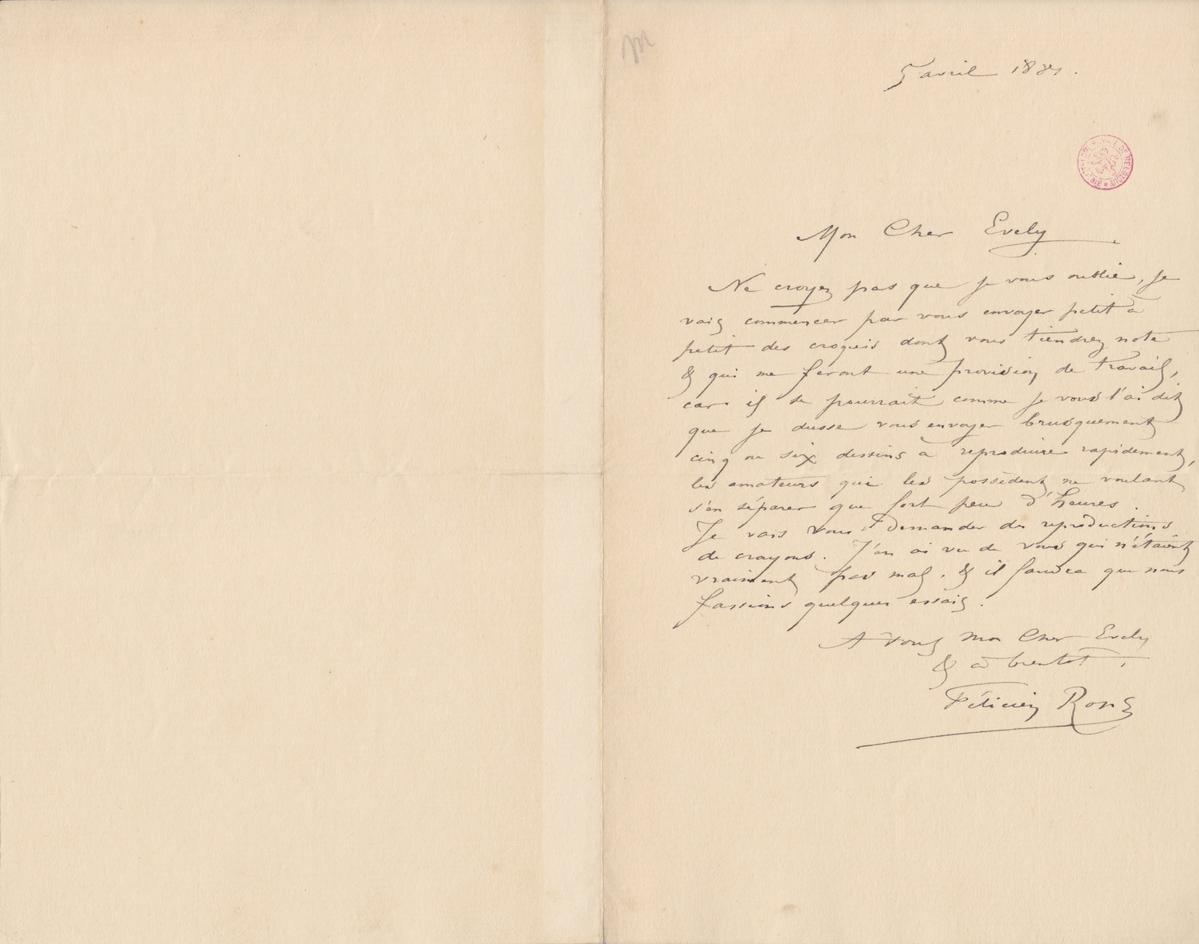 M
5 avril 18
Mon Cher Evely
Ne croyez pas que je vous oublie, je
vais commencer par vous envoyer petit à
petit des croquis dont vous tiendrez note
& qui me feront une provision de travail,
car il se pourrait comme je vous l'ai dit
que je dusse vous envoyer brusquement
cinq ou six dessins à reproduire rapidement,
les amateurs qui les possèdent ne voulant
s'en séparer que fort peu d'heures.
Je vais vous demander des reproductions
de crayons. J'en ai vu de vous qui n'étaient
vraiment pas mal, & il faudra que nous
fassions quelques essais.
A vous mon Cher Evely
& à bientot.
Félicien Rops